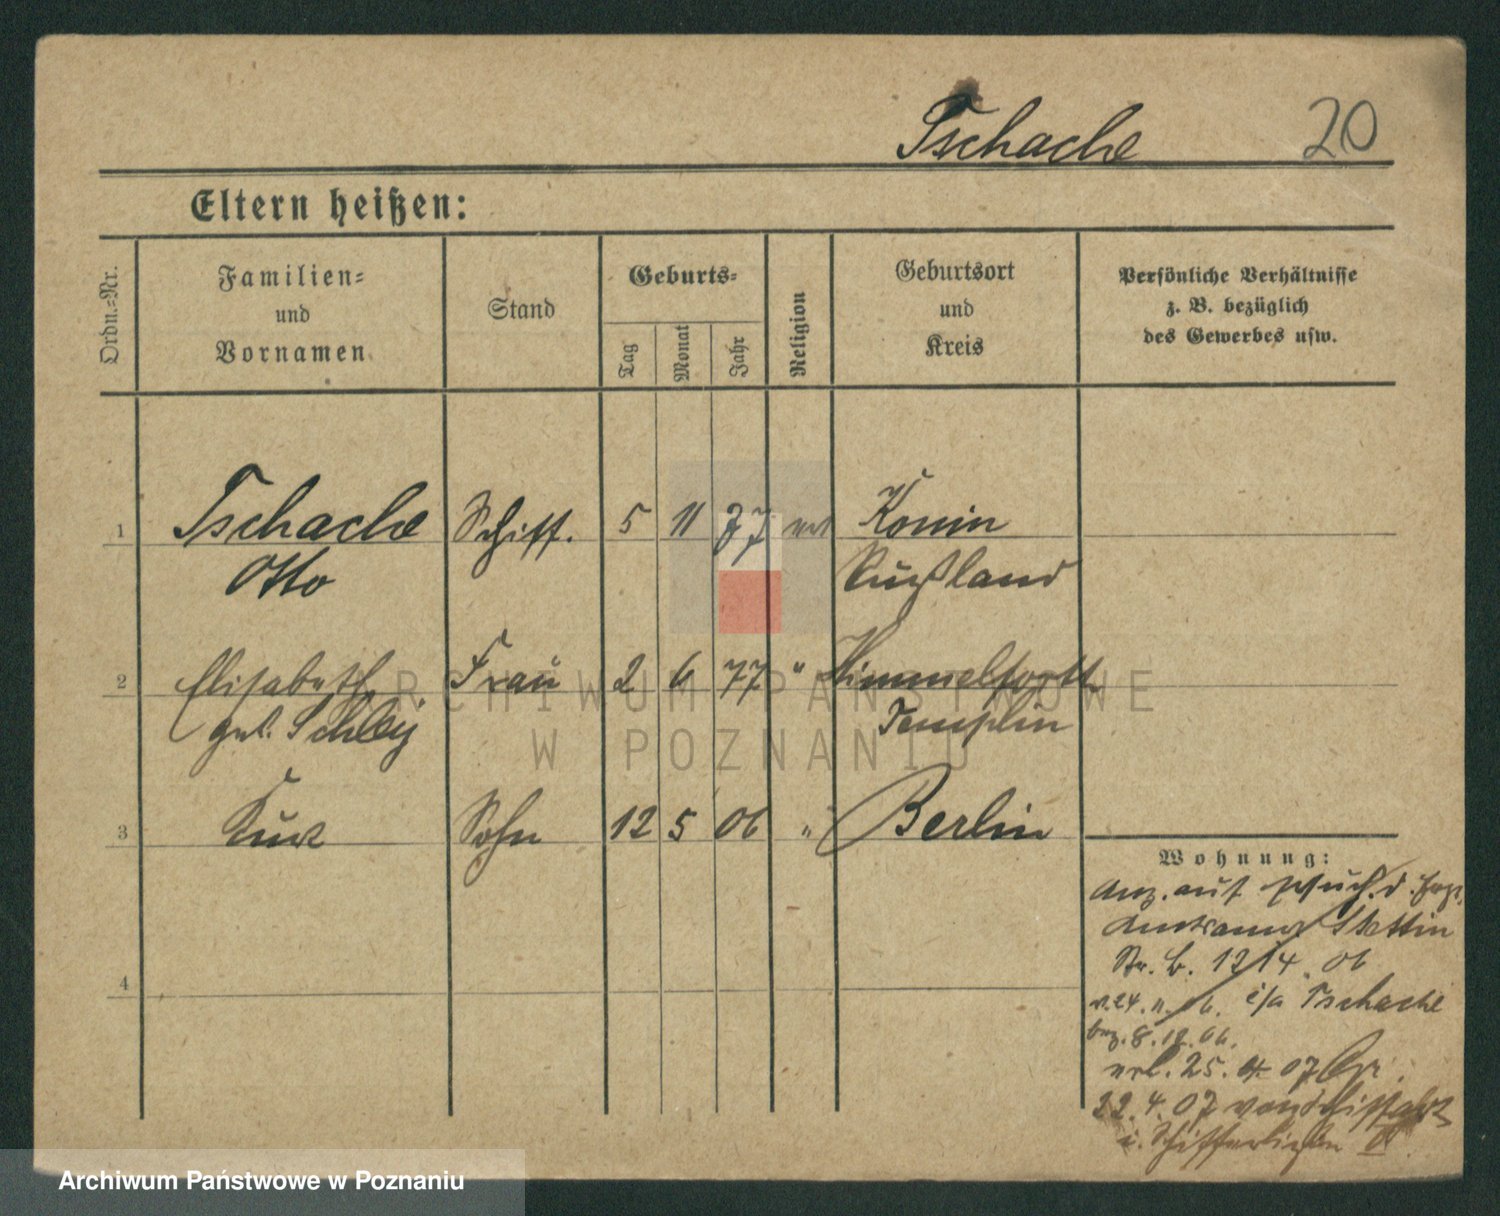 Tschache 20
Eltern heißen:
Ordn.-Nr.
Familien-
und
Vornamen
Stand
Geburts-
Tag
Monat
Jahr
Religion
Geburtsort
und
Kreis
Persönliche Verhältnisse
z. B. bezüglich
des Gewerbes usw.
1 Tschache Schiff. 5 11 77 Konin
Otto Rußland
2 Elisabeth Frau 2 6 77 " Himmelpfort
geb. Schley Templin
3 Kurt Sohn 12 5 06 " Berlin
4
Wohnung:
auf d.
Stettin
Str. b. 1214. 06
v. 24. 11. 06. i/a Tschache
8. 12. 06.
25. 4. 07
22. 4. 07
i.
ARCHIWUM PAŃSTWOWE
W POZNANIU
Archiwum Państwowe w Poznaniu